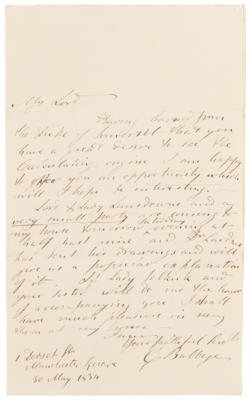 My Lord
Having learned from
the Duke of Somerset that you
have a great desire to see the
Calculating engine I am happy
to offer you an opportunity which
will I hope be interesting.
Lord & Lady Lansdowne and a
very small party are coming to
my house tomorrow evening at
half past nine and Dr Lardner
has sent his drawings and will
give us a
explanation
of it. If Lady
and
your sister will do me the honor
of accompanying you I shall
have much pleasure in seeing
them at my house.
I am
Your faithful
C Babbage
1 Dorset St
Manchester Square
30 May 1834